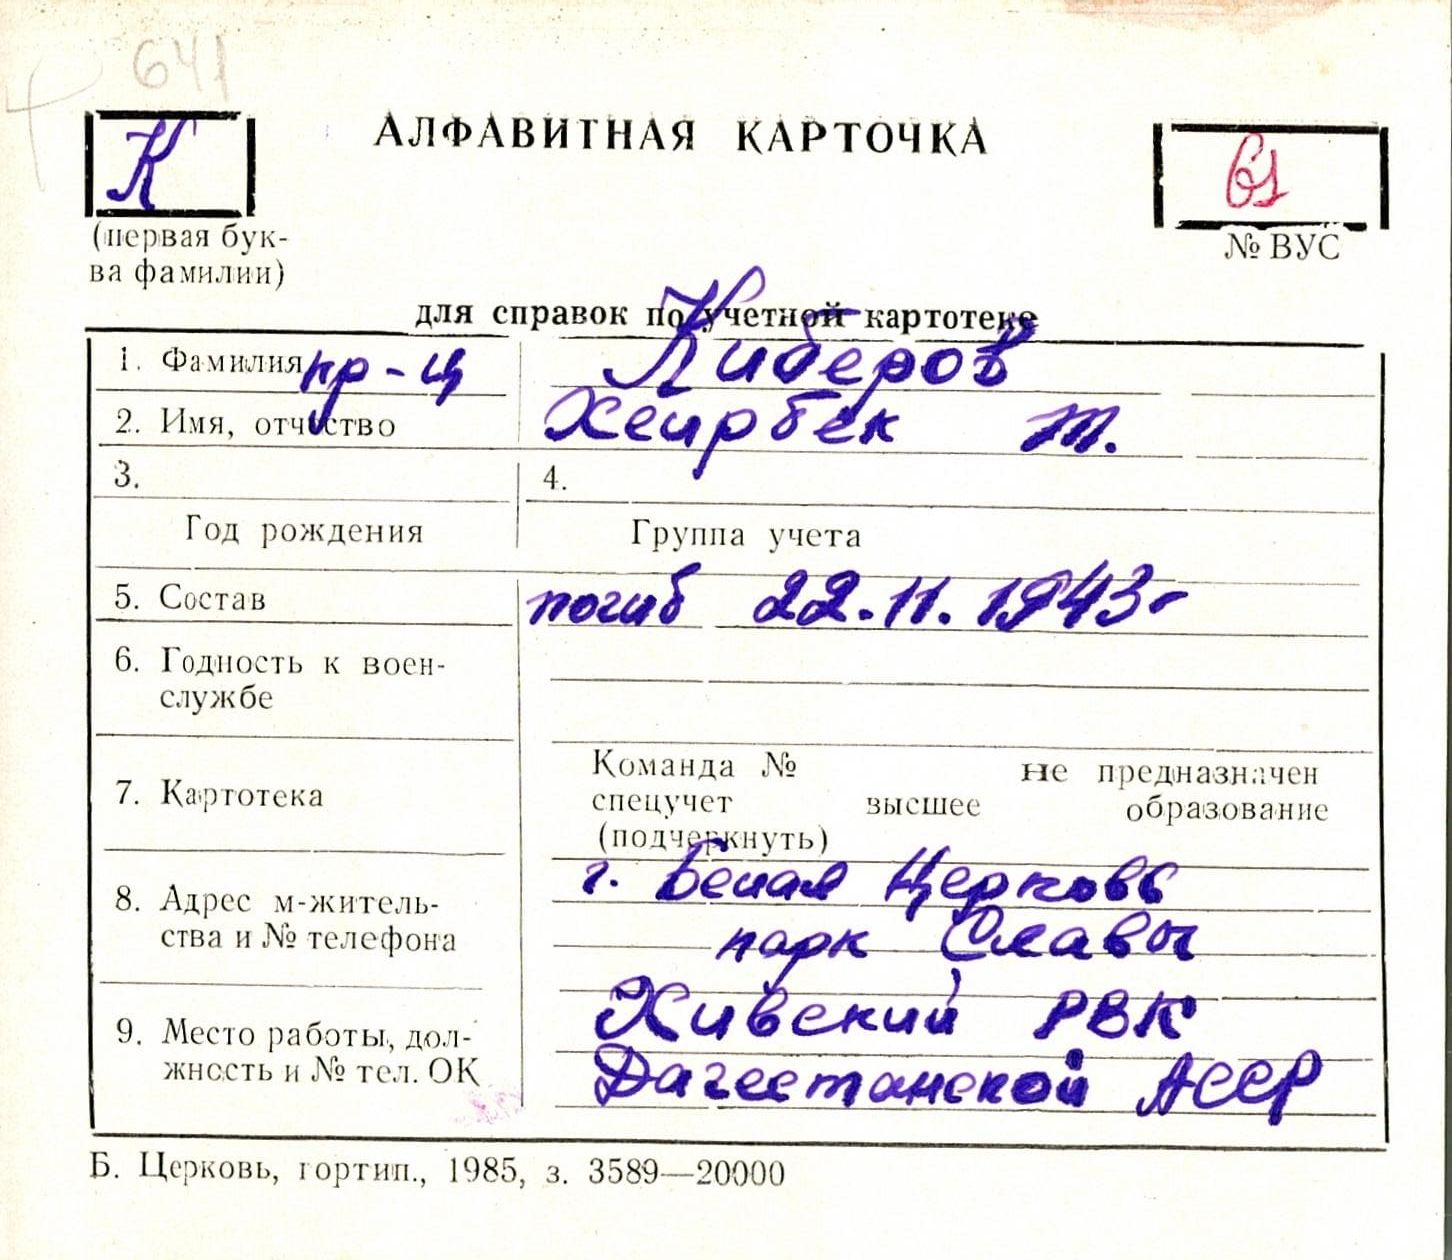 641
АЛФАВИТНАЯ КАРТОЧКА
К
61
(первая бук-
ва фамилии)
№ ВУС
для справок по учетной картотеке
1. Фамилия кр-ц Киберов
2. Имя, отчество Хеирбек М.
3. 4.
Год рождения Группа учета
5. Состав погиб 22.11.1943г
6. Годность к воен-
службе
7. Картотека
Команда № не предназначен
спецучет высшее образование
(подчеркнуть)
8. Адрес м-житель-
ства и № телефона
г. Белая Церковь
парк Славы
9. Место работы, дол-
жность и № тел. ОК
Хивский РВК
Дагестанской АССР
Б. Церковь, гортип., 1985, з. 3589—20000